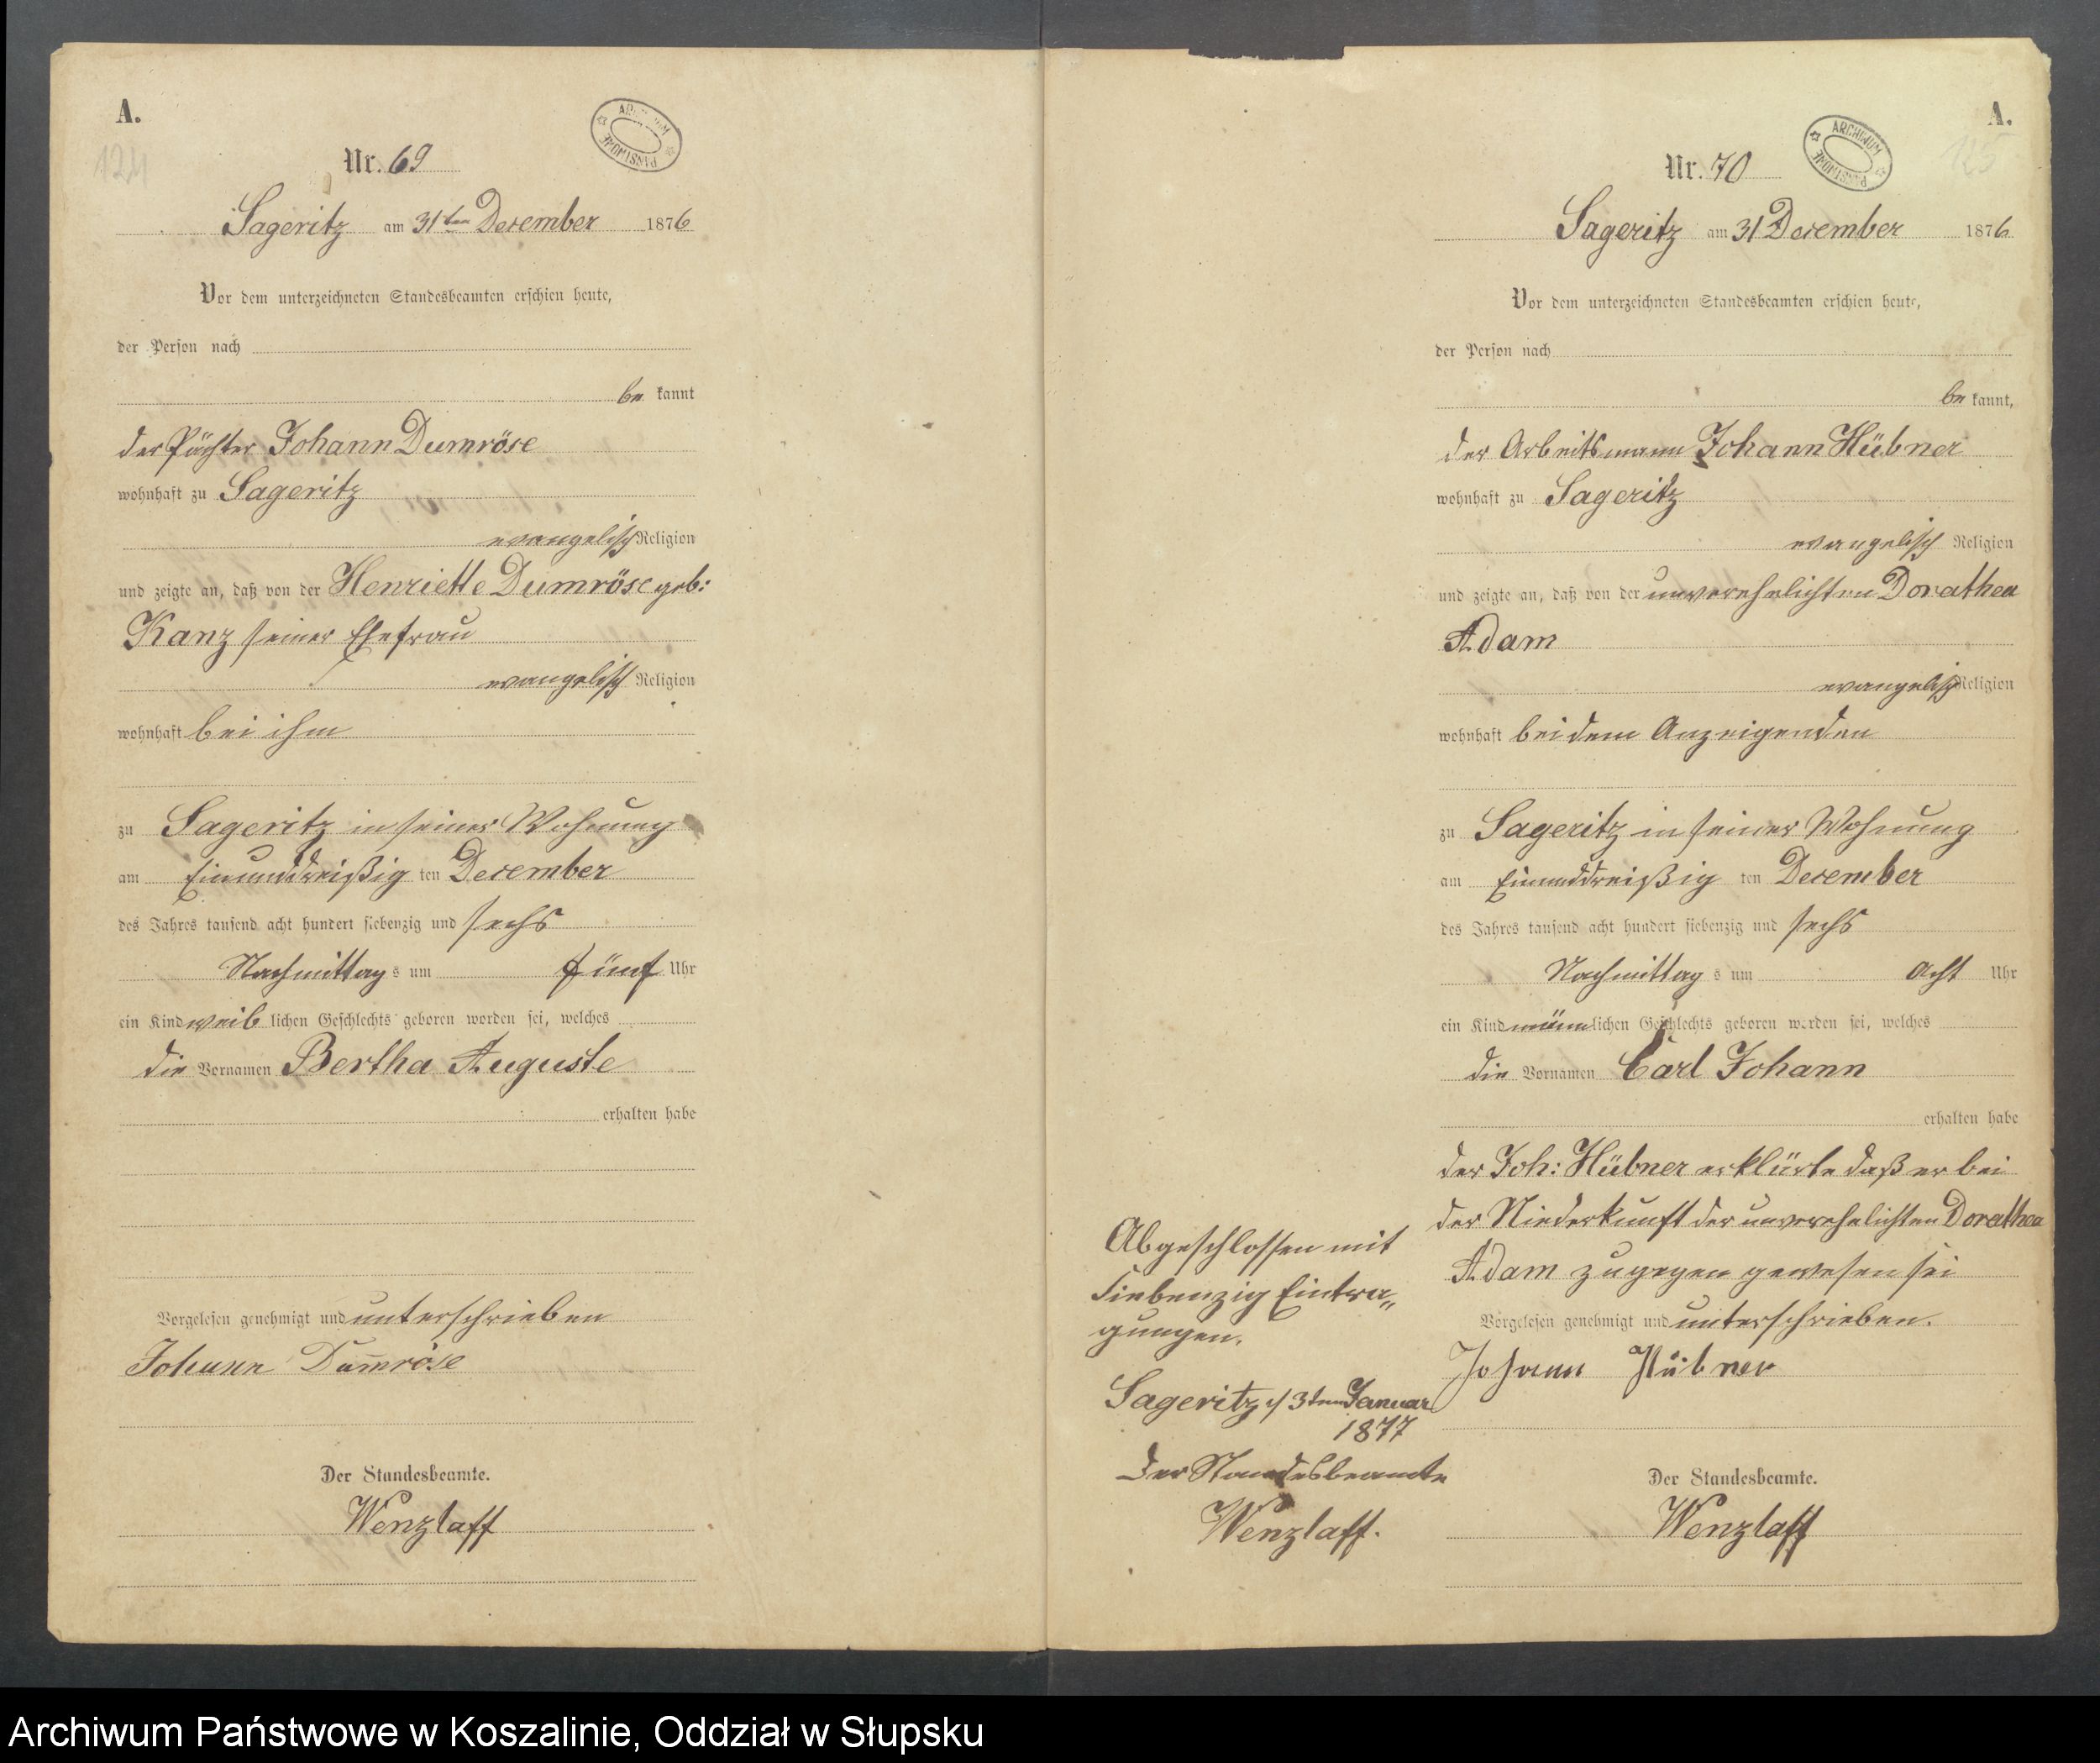 A.
124
Nr. 69
ARCHIWUM PAŃSTWOWE
Sageritz am 31ten December 1876
Vor dem unterzeichneten Standesbeamten erschien heute,
der Person nach
be kannt
der Pächter Johann Dumröse
wohnhaft zu Sageritz
evangelisch Religion
und zeigte an, daß von der Henriette Dumröse geb:
Kanz seiner Ehefrau
evangelisch Religion
wohnhaft bei ihm
zu Sageritz in seiner Wohnung
am Einunddreißig ten December
des Jahres tausend acht hundert siebenzig und sechs
Nachmittag s um fünf Uhr
ein Kind weib lichen Geschlechts geboren worden sei, welches
die Vornamen Bertha Auguste
erhalten habe
Vorgelesen genehmigt und unterschrieben
Johann Dumröse
Der Standesbeamte.
Wenzlaff
A.
125
Nr. 70
ARCHIWUM PAŃSTWOWE
Sageritz am 31 December 1876
Vor dem unterzeichneten Standesbeamten erschien heute,
der Person nach
be kannt,
der Arbeitsmann Johann Hübner
wohnhaft zu Sageritz
evangelisch Religion
und zeigte an, daß von der unverehelichten Dorathea
Adam
evangelisch Religion
wohnhaft bei dem Anzeigenden
zu Sageritz in seiner Wohnung
am Einunddreißig ten December
des Jahres tausend acht hundert siebenzig und sechs
Nachmittag s um Acht Uhr
ein Kind männ lichen Geschlechts geboren worden sei, welches
die Vornamen Carl Johann
erhalten habe
der Joh: Hübner erklärte daß er bei
der Niederkunft der unverehelichten Dorathea
Adam zugegen gewesen sei
Vorgelesen genehmigt und unterschrieben.
Johann Hübner
Der Standesbeamte.
Wenzlaff
Abgeschlossen mit
Siebenzig Eintra„
gungen.
Sageritz d 3ten Januar
1877
Der Standesbeamte
Wenzlaff.
Archiwum Państwowe w Koszalinie, Oddział w Słupsku